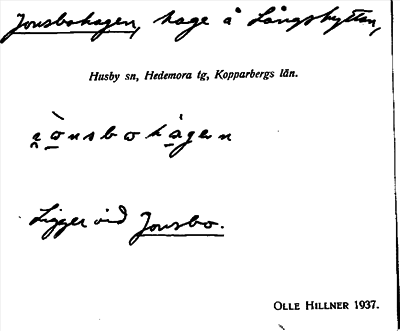 Jonsbohagen, hage å Långshyttan,
Husby sn, Hedemora tg, Kopparbergs län.
Ligger vid Jonsbo.
OLLE HILLNER 1937.